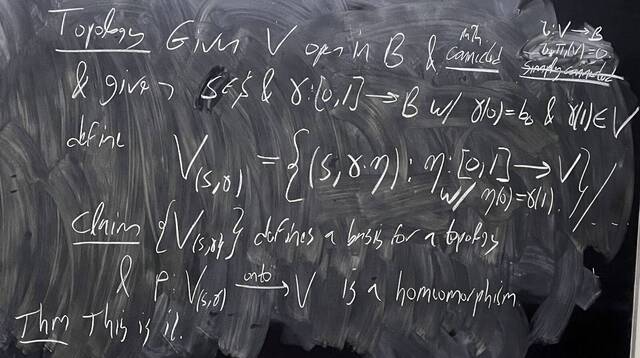 Topology Given V open in B & path connected i: V → B
by π₁(V) = 0
simply connected
& given s ∈ S & γ: [0,1] → B w/ γ(0) = b₀ & γ(1) ∈ V
define
V(s,γ) = { (s, γ·η) : η: [0,1] → V } / ...
w/ η(0) = γ(1).
Claim {V(s,γ)} defines a basis for a topology
& p: V(s,γ) onto → V is a homeomorphism
Thm This is it.